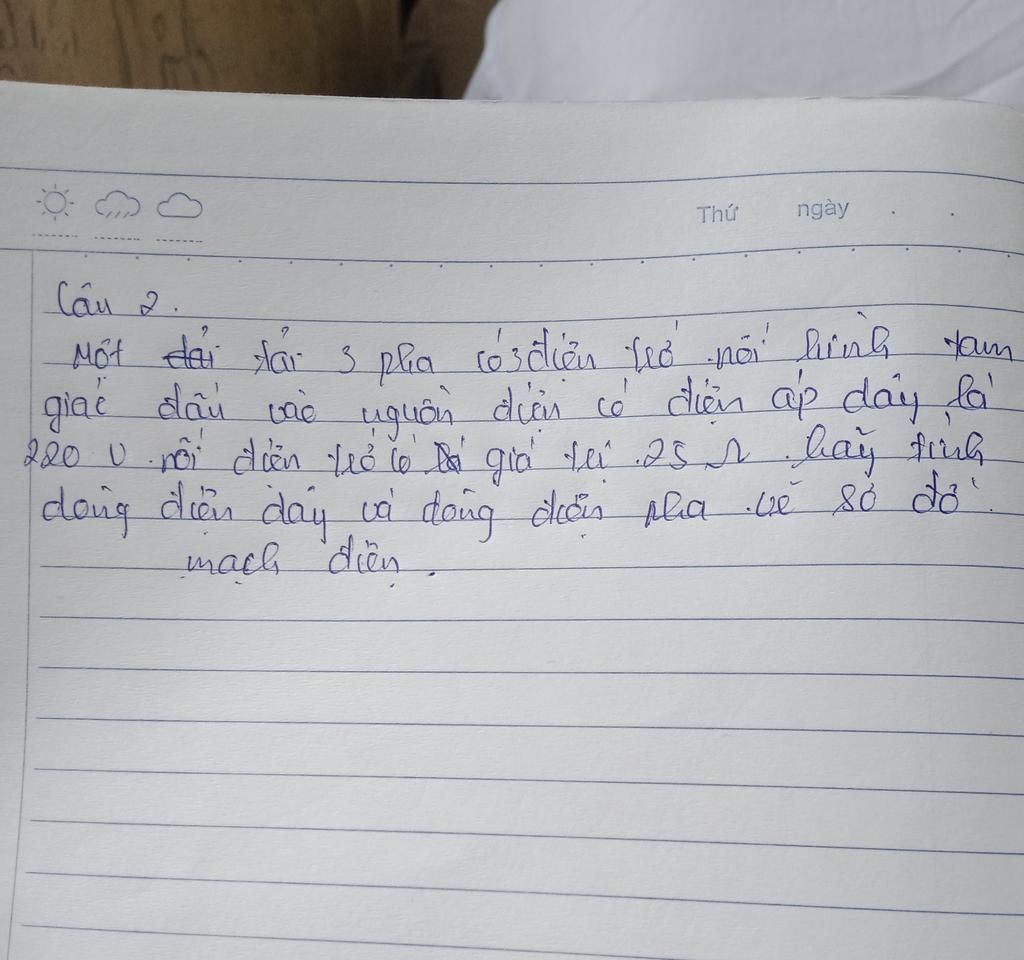 Thứ ngày . .
Câu 2.
Một tải 3 pha có 3 điện trở nối hình tam
giác đấu vào nguồn điện có điện áp dây là
220 V. nối điện trở có giá trị 25 Ω. hãy tính
dòng điện dây và dòng điện pha. vẽ sơ đồ
mạch điện.